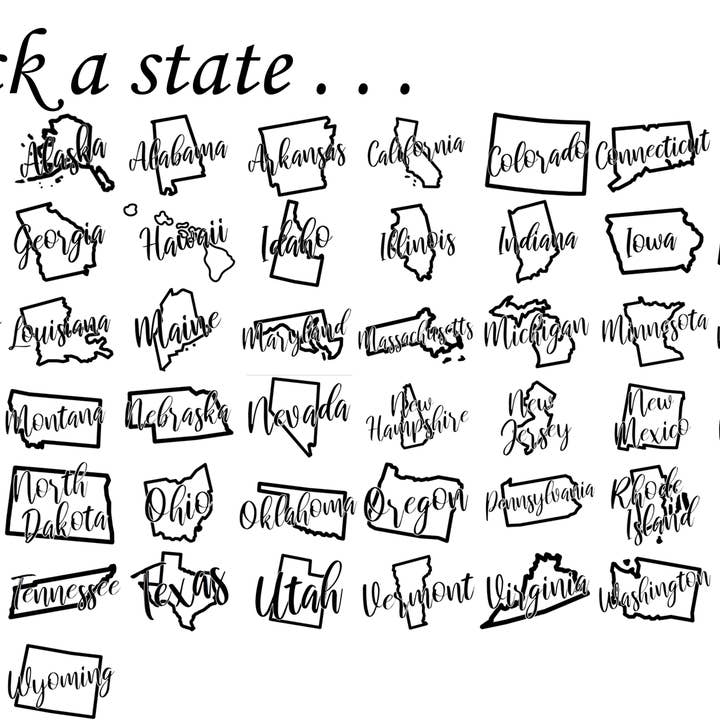 ck a state . . .
Alaska Alabama Arkansas California Colorado Connecticut
Georgia Hawaii Idaho Illinois Indiana Iowa
Louisiana Maine Maryland Massachusetts Michigan Minnesota
Montana Nebraska Nevada New Hampshire New Jersey New Mexico
North Dakota Ohio Oklahoma Oregon Pennsylvania Rhode Island
Tennessee Texas Utah Vermont Virginia Washington
Wyoming